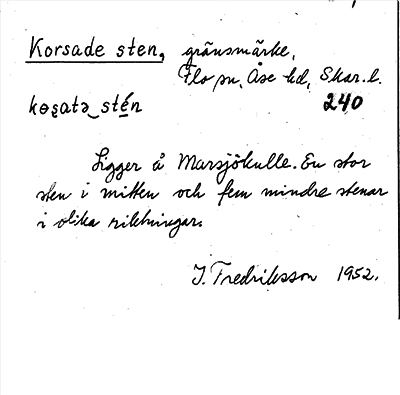 Korsade sten, gränsmärke,
Flo sn, Åse hd, Skar. l.
kɵʂatə‿stén 240
Ligger å Marsjökulle. En stor
sten i mitten och fem mindre stenar
i olika riktningar.
J. Fredriksson 1952.